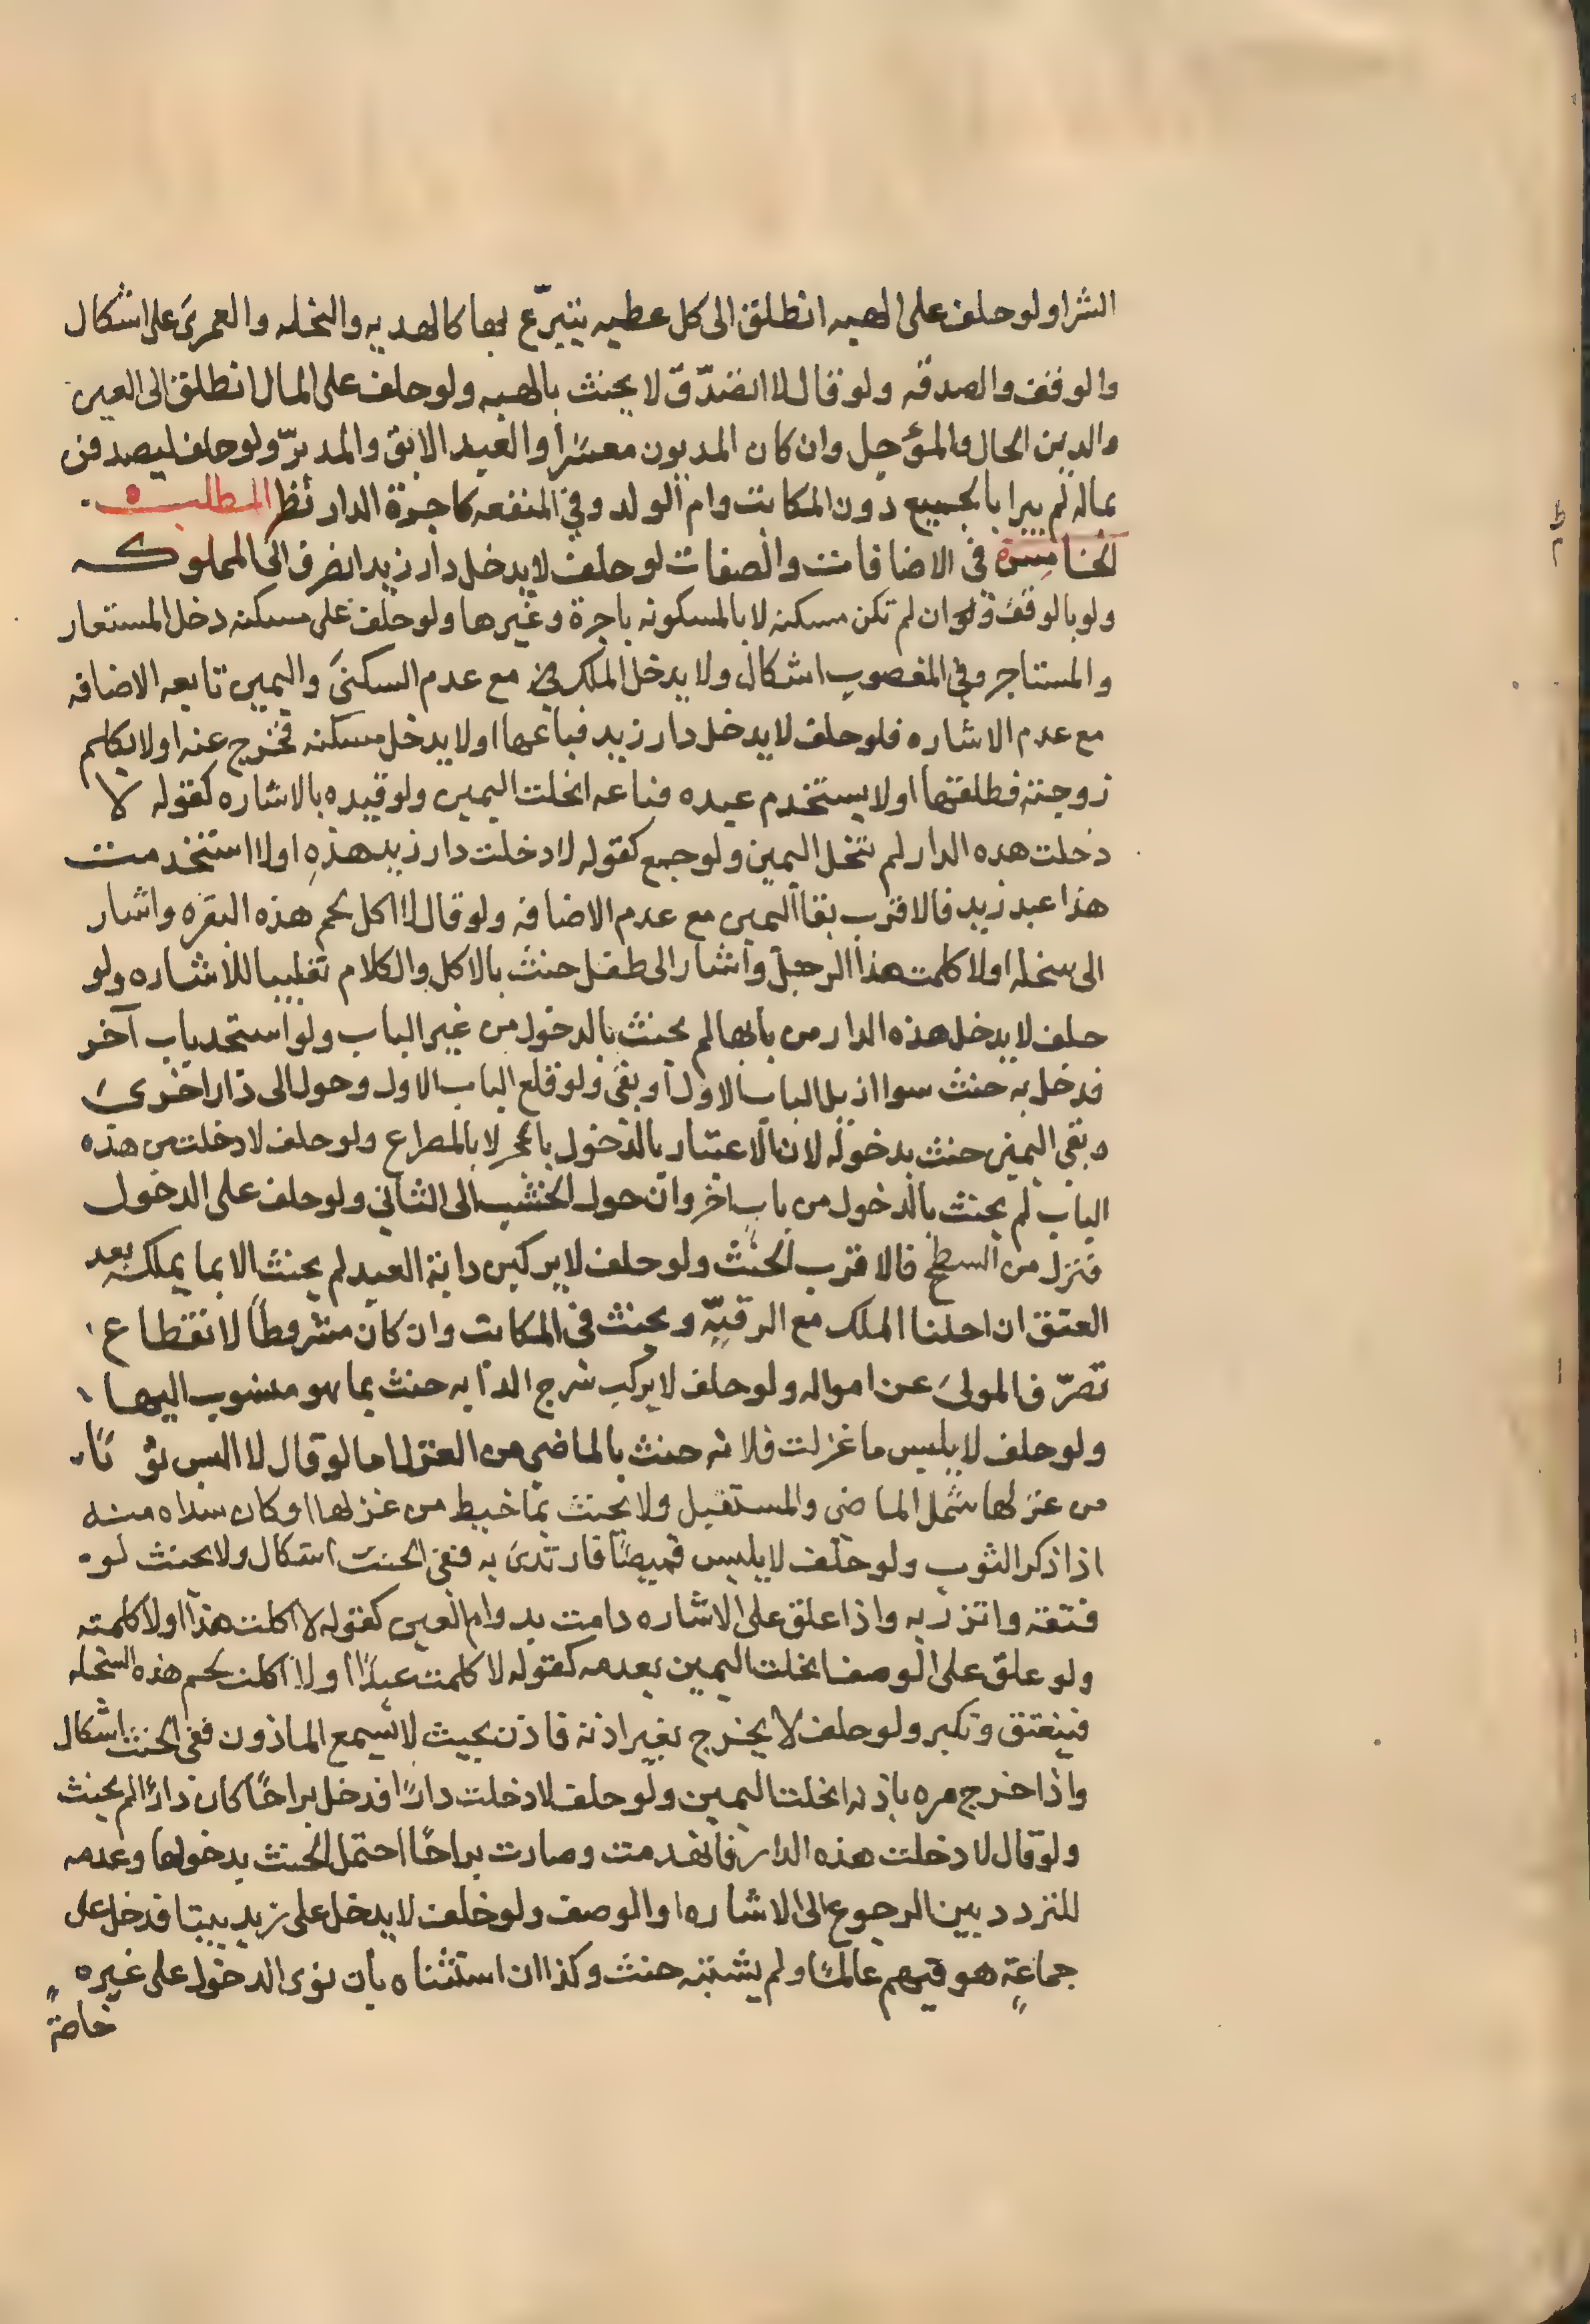 الشرا ولو حلف على الهبه انطلق الى كل عطيه يتبرّع بها كالهديه والنحله والعمرى على اشكال
والوقف والصدقه ولو قال لا اتصدّق لا يحنث بالهبه ولو حلف على المال انطلق الى العين
والدين الحال والمؤجل وان كان المديون معسرًا والعبد الابق والمدبرّ ولو حلف ليصدقن
بماله لم يبرا بالجميع دون المكاتب وام الولد وفي المنفعه كاجرة الدار نظر المطلب
الخامس في الاضافات والصفات لو حلف لا يدخل دار زيد انصرف الى المملوكه
ولو بالوقف ولو ان لم تكن مسكنه لا بالمسكونه باجرة وغيرها ولو حلف على مسكنه دخل المستعار
والمستاجر وفي المغصوب اشكال ولا يدخل الملك مع عدم السكنى واليمين تابعه الاضافه
مع عدم الاشاره فلو حلف لا يدخل دار زيد فباعها او لا يدخل مسكنه فخرج عنه او لا يكلم
زوجته فطلقها او لا يستخدم عبده فباعه انحلت اليمين ولو قيده بالاشاره كقوله لا
دخلت هده الدار لم تنحل اليمين ولو جمع كقوله لا دخلت دار زيد هذهِ او لا استخدمت
هذا عبد زيد فالاقرب بقا اليمين مع عدم الاضافه ولو قال لا اكل لحم هذه البقره واشار
الى سخله او لا كلمت هذا الرجل واشار الى طفل حنث بالاكل والكلام تغليبا للاشاره ولو
حلف لا يدخل هذه الدار من بابها لم يحنث بالدخول من غير الباب ولو استحد باب آخر
فدخل به حنث سوا ازيل الباب الاول او بقى ولو قلع الباب الاول وحول الى دار اخرى
وبقي اليمين حنث بدخوله لان الاعتبار بالدخول بالممر لا بالمصراع ولو حلف لا دخلت من هذه
الباب لم يحنث بالدخول من باب اخر وان حول الخشب الى الثاني ولو حلف على الدخول
فنزل من السطح فالاقرب الحنث ولو حلف لا يركبن دابة العبد لم يحنث الا بما يملكه بعد
العتق ان احلنا الملك مع الرقيّه ويحنث في المكاتب وان كان مشروطًا لانقطاع
تصرّف المولى عن امواله ولو حلف لا يركب سرج الدابه حنث بما هو منسوب اليها
ولو حلف لا يلبس ما غزلت فلانه حنث بالماضي من الغزل اما لو قال لا البس ثوبًا
من غزلها شمل الماضى والمستقبل ولا يحنث بما خيط من غزلها او كان سداه منه
اذا ذكر الثوب ولو حلف لا يلبس قميصًا فارتدى به ففي الحنث اشكال ولا يحنث لو
فتقه واتزر به واذا علق على الاشاره دامت بدوام العين كقوله لا اكلت هذا او لا كلمته
ولو علق على الوصف انحلت اليمين بعدمه كقوله لا كلمت عبدًا او لا اكلت لحم هذه السخله
فينعتق وتكبر ولو حلف لا يخرج بغير اذنه فاذن بحيث لا يسمع الماذون ففى الحنث اشكال
واذا خرج مره باذنه انحلت اليمين ولو حلف لا دخلت دارًا فدخل براحًا كان دارًا لم يحنث
ولو قال لا دخلت هذه الدار فانهدمت وصارت براحًا احتمل الحنث بدخولها وعدمه
للتردد بين الرجوع الى الاشاره او الوصف ولو حلف لا يدخل على زيد بيتا فدخل على
جماعةٍ هو فيهم عالمًا ولم يستثنه حنث وكذا ان استثناه بان نوى الدخول على غيره
خاصة